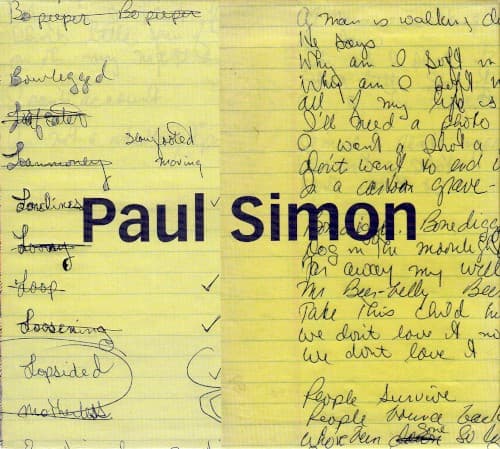 Bo peeper Bo peeper
Bowlegged
slowfooted
moving
Loneliness
Loony
Loop
Loosening
Lopsided
Motherless
Paul Simon
A man is walking do
He says
Why am I soft in
Why am I soft in
all of my life is
I'll need a photo
I want a shot a
don't want to end u
In a cartoon grave
Bonedigger. Bonedigg
Dog in the moonlig
Far away my well
Mr Beer-belly Beer
Take this child
we don't love it no
we don't love it
People survive
People bounce back
gone so lo